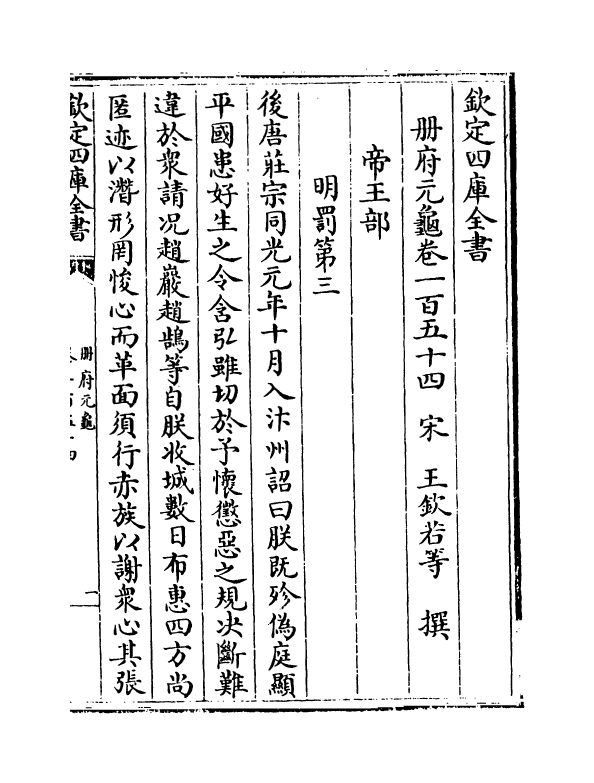 欽定四庫全書
册府元龜卷一百五十四 宋 王欽若等 撰
帝王部
明罰第三
後唐莊宗同光元年十月入汴州詔曰朕既殄偽庭顯
平國患好生之令含弘雖切於予懷懲惡之規决斷難
違於衆請况趙巖趙鵠等自朕收城數日布惠四方尚
匿迹以潛形罔悛心而革面須行赤族以謝衆心其張
欽定四庫全書
册府元龜
卷一百五十四
一